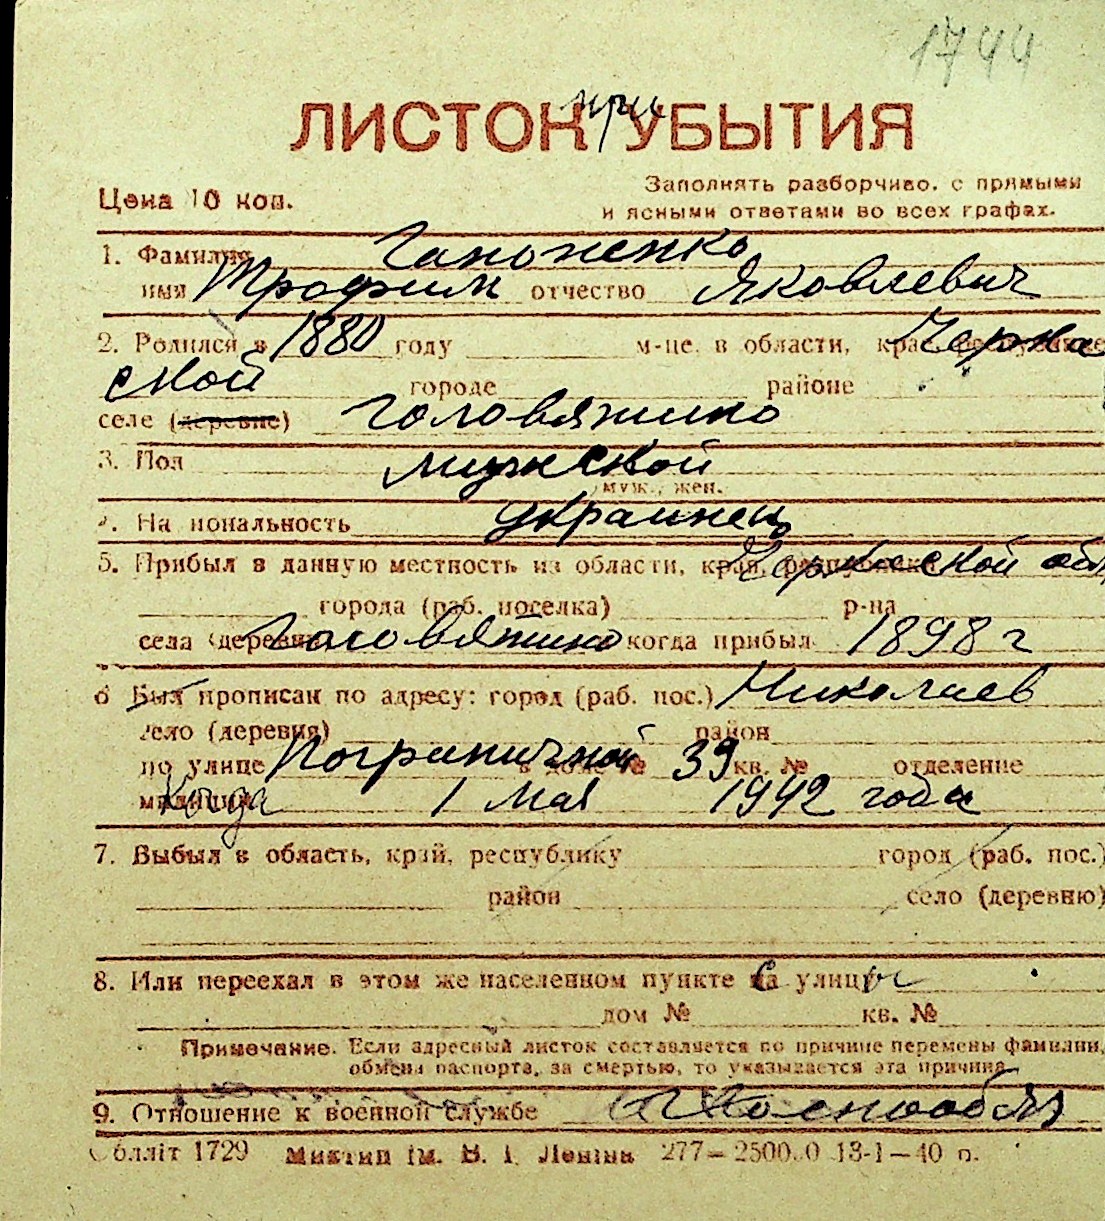 1744
ЛИСТОК при УБЫТИЯ
Цена 10 коп.
Заполнять разборчиво, с прямыми
и ясными ответами во всех графах.
1. Фамилия Гапоненко
имя Трофим отчество Яковлевич
2. Родился в 1880 году м-це, в области, крае, республике Черкас
ской городе районе
селе (деревне) Головятино
3. Пол мужской
муж., жен.
На иональность украинец
5. Прибыл в данную местность из области, края, республики Черкасской обл
города (раб. поселка) р-на
села (деревни) Головятино когда прибыл 1898 г
6 Был прописан по адресу: город (раб. пос.) Николаев
село (деревня) район
по улице Пограничной в доме № 39 кв. № отделение
милиции Когда 1 мая 1942 года
7. Выбыл в область, край, республику город (раб. пос.)
район село (деревню)
8. Или переехал в этом же населенном пункте на с улицу ы
дом № кв. №
Примечание. Если адресный листок составляется по причине перемены фамилии,
обмена паспорта, за смертью, то указывается эта причина
9. Отношение к военной службе
Обллiт 1729 Миктип iм. В. I. Ленiна 277—2500.0 13-1—40 п.